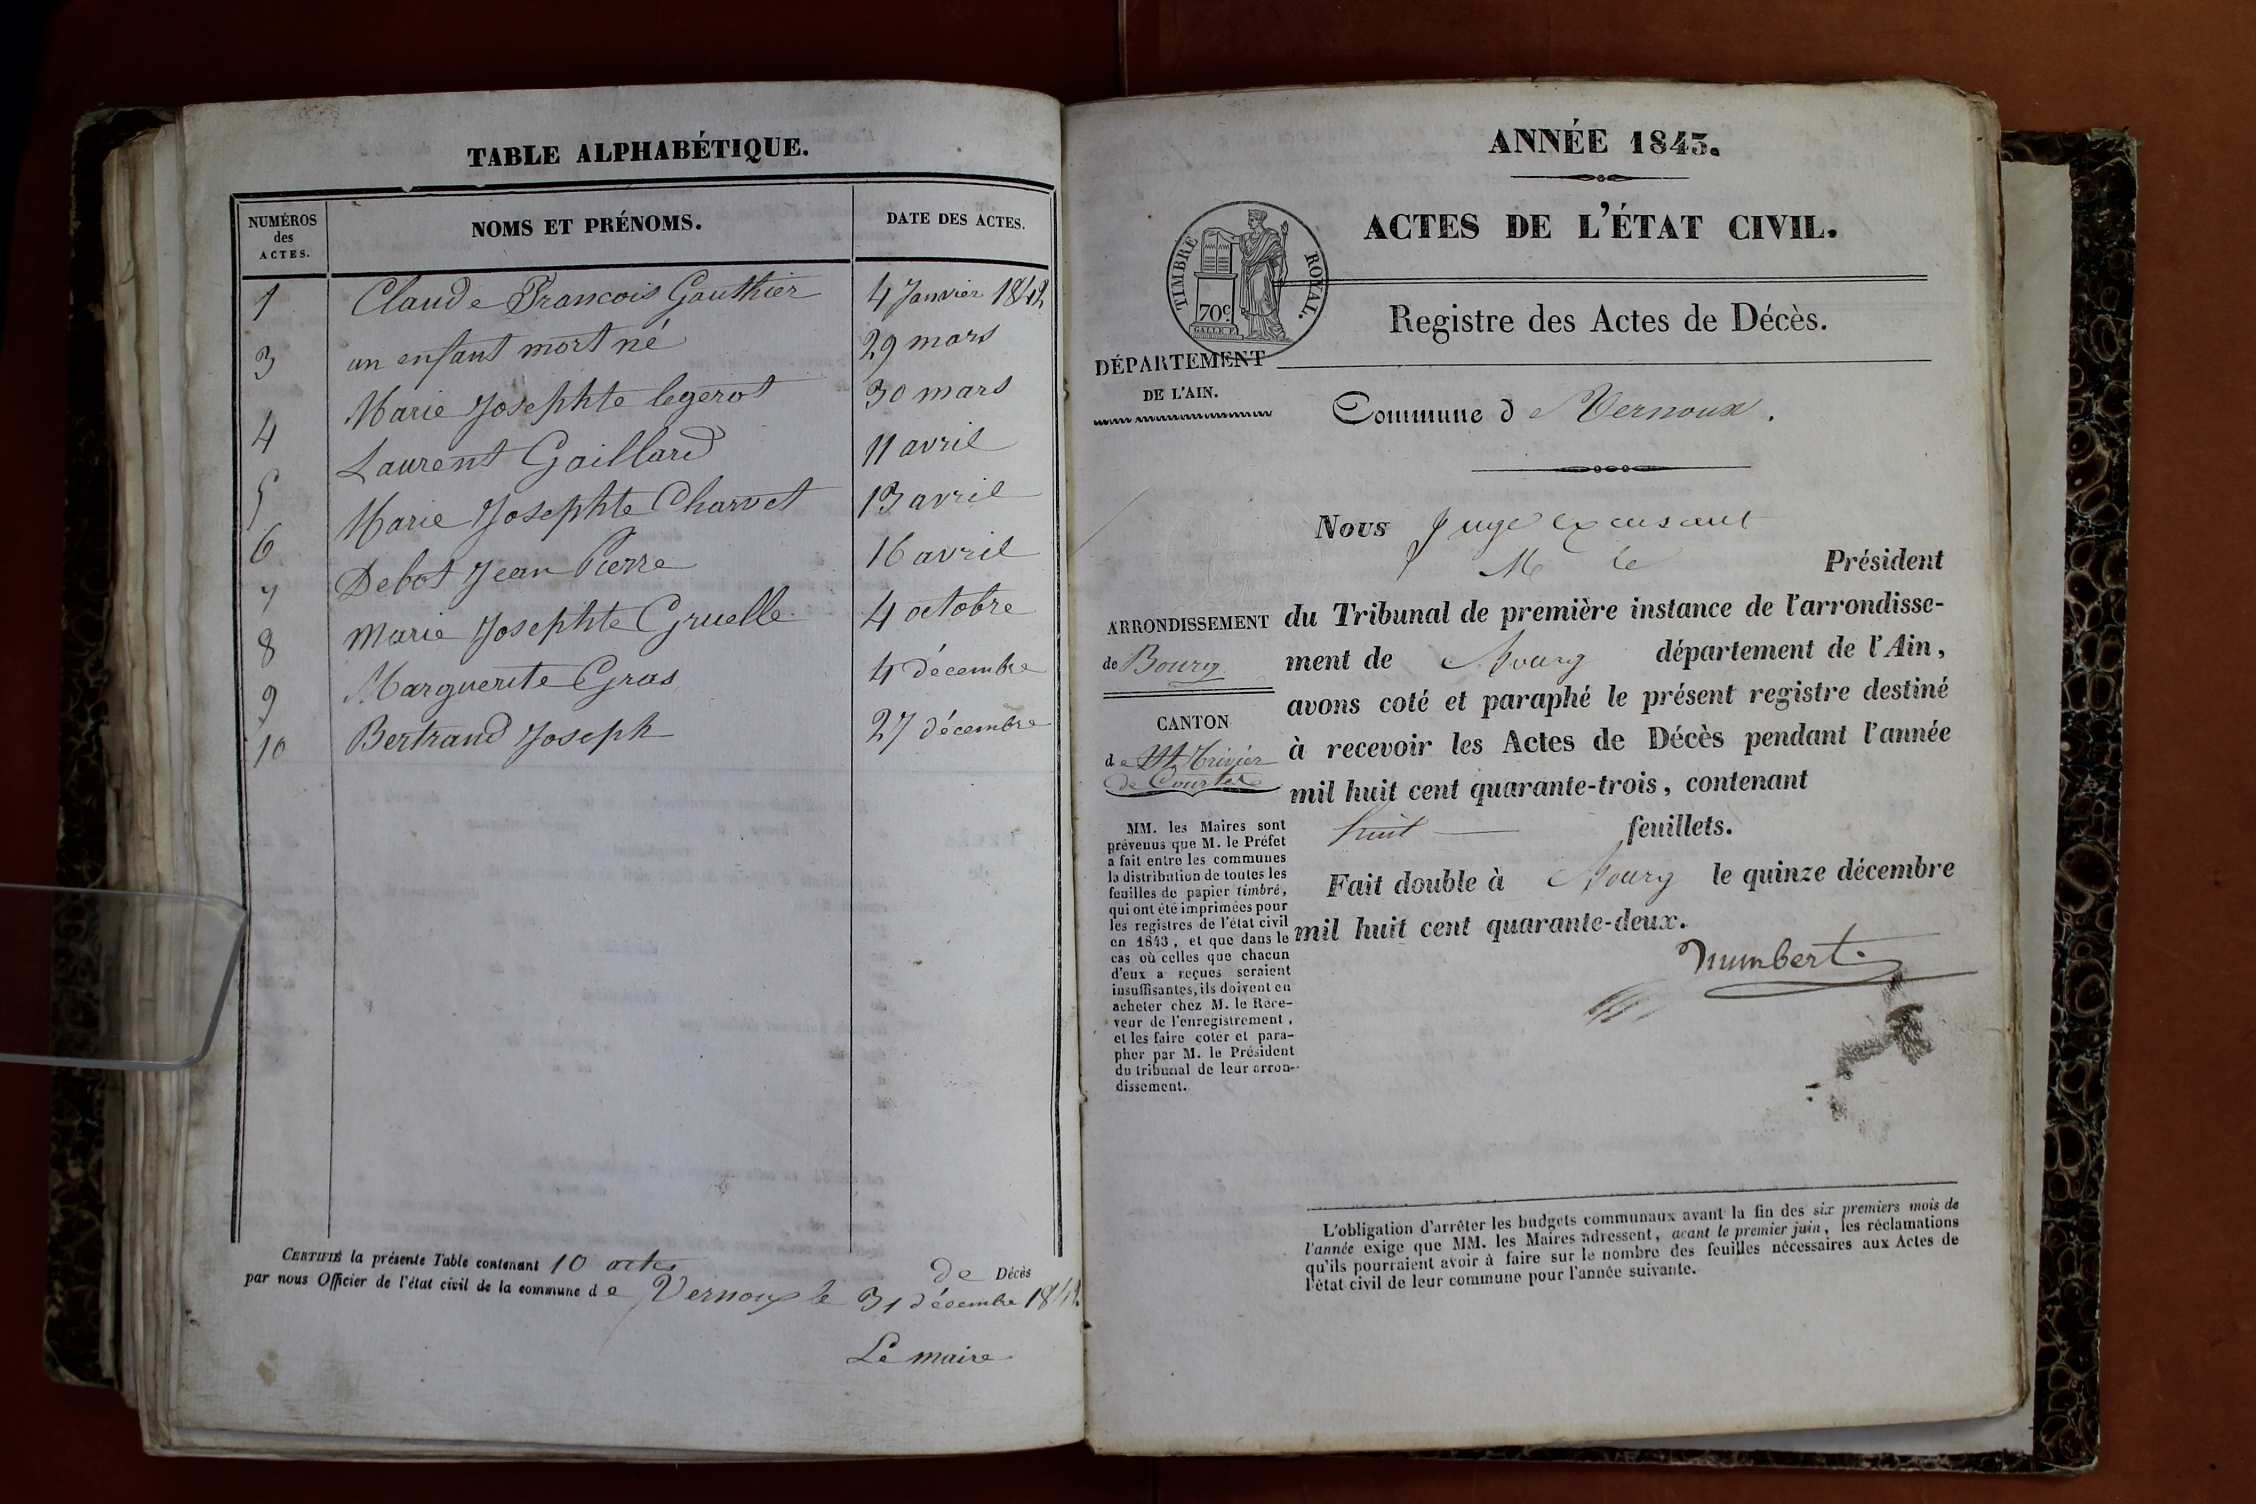 TABLE ALPHABÉTIQUE.
NUMÉROS des ACTES.
NOMS ET PRÉNOMS.
DATE DES ACTES.
1 Claude Francois Gauthier 4 Janvier 1842
3 un enfant mort né 29 mars
Marie Josephte legerot 30 mars
4 Laurent Gaillard 11 avril
5 Marie Josephte Charvet 13 avril
6 Debot Jean Pierre 16 avril
7 Marie Josephte Gruelle 4 octobre
8 Marguerite Gras 4 décembre
9 Bertrand Joseph 27 décembre
10
CERTIFIÉ la présente Table contenant 10 actes de Décès
par nous Officier de l'état civil de la commune de Vernoux le 31 décembre 1842.
Le maire
ANNÉE 1843.
ACTES DE L'ÉTAT CIVIL.
TIMBRE ROYAL.
70c.
GALLE F.
Registre des Actes de Décès.
DÉPARTEMENT
DE L'AIN.
Commune de Vernoux.
ARRONDISSEMENT
de Bourg
CANTON
de St Trivier
de Courtes
MM. les Maires sont
prévenus que M. le Préfet
a fait entre les communes
la distribution de toutes les
feuilles de papier timbré,
qui ont été imprimées pour
les registres de l'état civil
en 1843, et que dans le
cas où celles que chacun
d'eux a reçues seraient
insuffisantes, ils doivent en
acheter chez M. le Rece-
veur de l'enregistrement,
et les faire coter et para-
pher par M. le Président
du tribunal de leur arron-
dissement.
Nous Juge excusant
M le Président
du Tribunal de première instance de l'arrondisse-
ment de Bourg département de l'Ain,
avons coté et paraphé le présent registre destiné
à recevoir les Actes de Décès pendant l'année
mil huit cent quarante-trois, contenant
huit feuillets.
Fait double à Bourg le quinze décembre
mil huit cent quarante-deux.
humbert.
L'obligation d'arrêter les budgets communaux avant la fin des six premiers mois de
l'année exige que MM. les Maires adressent, avant le premier juin, les réclamations
qu'ils pourraient avoir à faire sur le nombre des feuilles nécessaires aux Actes de
l'état civil de leur commune pour l'année suivante.